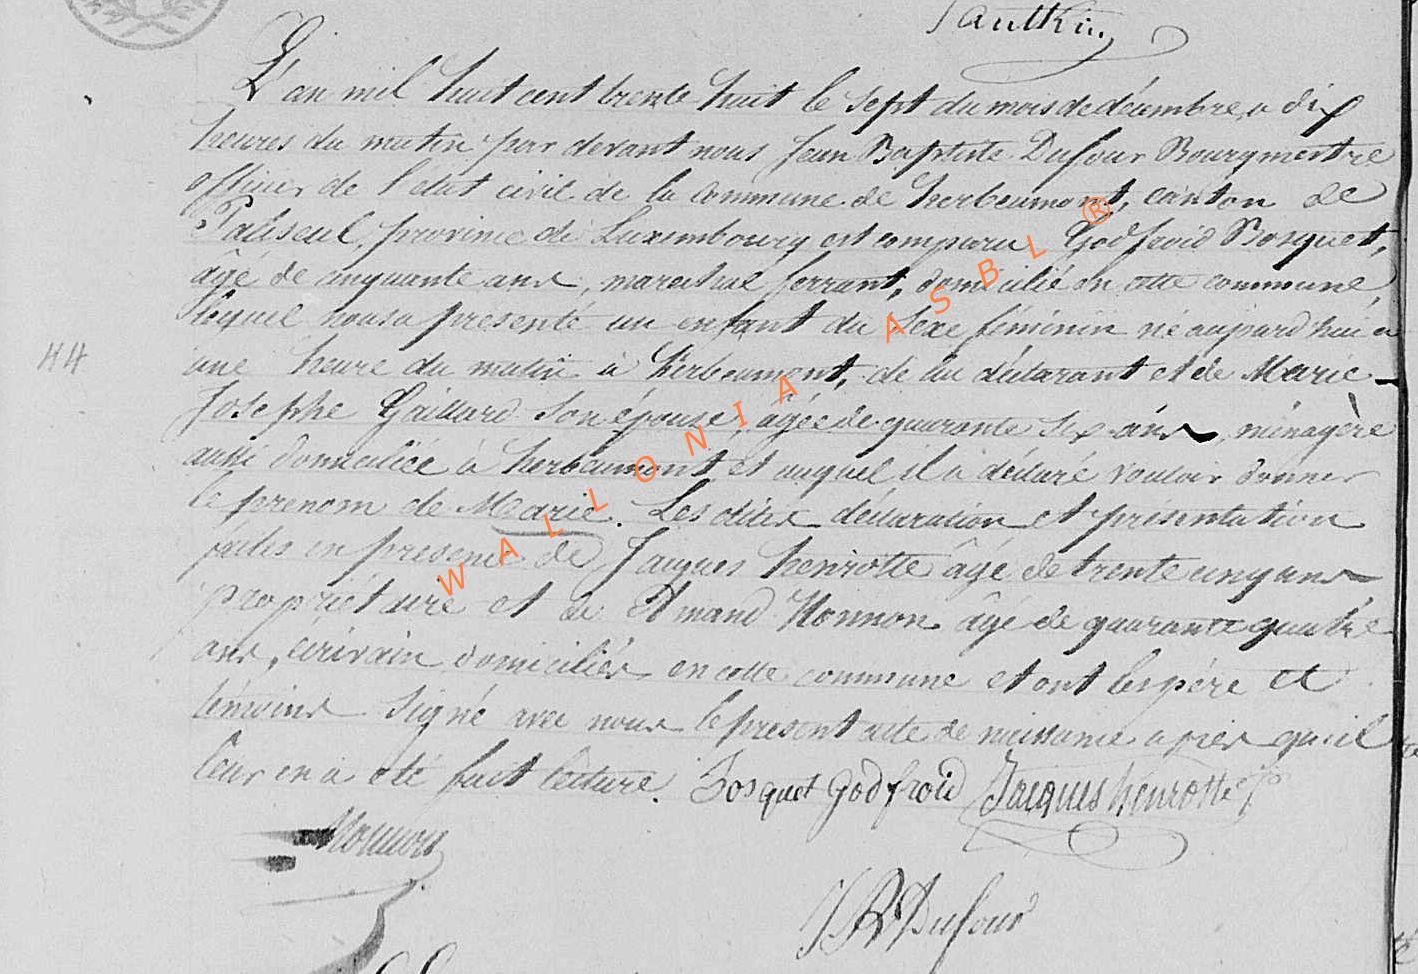 Saulkin
L'an mil huit cent trente huit le sept du mois de décembre, a dix
heures du matin par devant nous Jean Baptiste Dufour Bourgmestre
officier de l'etat civil de la commune de herbeumont, canton de
Paliseul, province de Luxembourg est comparu Godfroid Bosquet,
âgé de cinquante ans, marechal ferrant, domicilié en cette commune,
lequel nous a presenté un enfant du sexe féminin né aujourd'hui a
44
une heure du matin à herbeumont, de lui déclarant et de Marie
Josephe Gaillard son épouse, âgée de quarante six ans, ménagère
aussi domiciliée à herbeumont et auquel il a déclaré vouloir donner
le prenom de Marie. Les dites déclaration et présentation
faites en presence de Jacques henrotte âgé de trente cinq ans
propriétaire et de Amand Monnon âgé de quarante quatre
ans, écrivain domiciliés en cette commune et ont les père et
témoins signé avec nous le present acte de naissance apres qu'il
leur en a été fait lecture. Bosquet Godfroid Jacques henrotte
Monnon
JB Dufour
WALLONIA ASBL ®